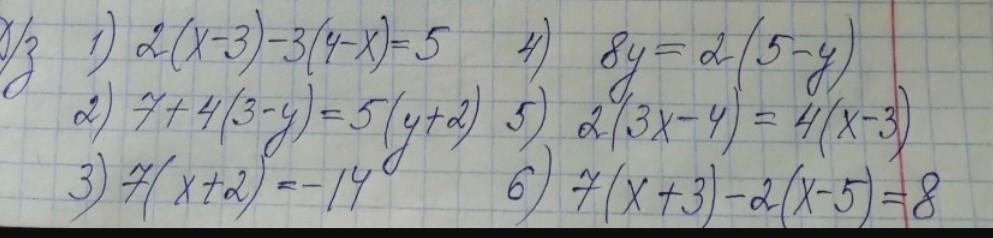 Д/з 1) 2(x-3)-3(4-x)=5 4) 8y=2(5-y)
2) 7+4(3-y)=5(y+2) 5) 2(3x-4)=4(x-3)
3) 7(x+2)=-14 6) 7(x+3)-2(x-5)=8